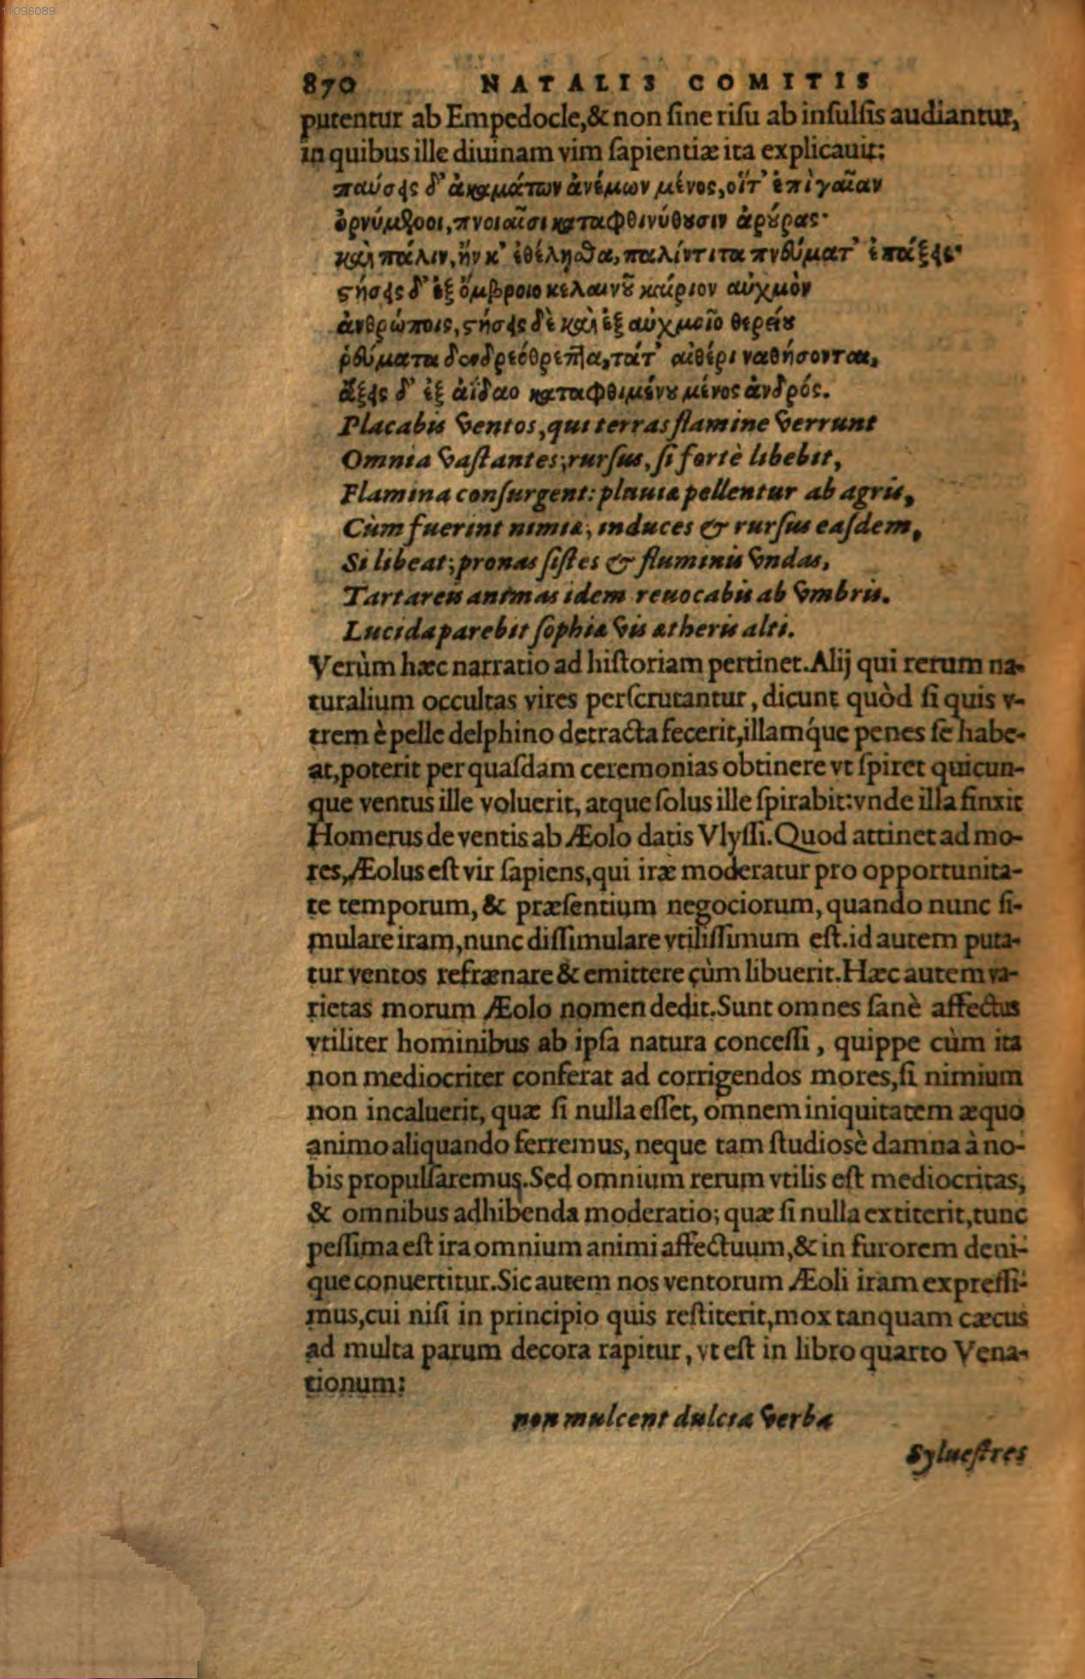 10096089
870 NATALIS COMITIS
putentur ab Empedocle,& non ſine riſu ab inſulſis audiantur,
in quibus ille diuinam vim ſapientiæ ita explicauit:
παύσεις δ' ἀκαμάτων ἀνέμων μένος, οἵτ' ἐπὶ γαῖαν
ὀρνύμενοι, πνοιαῖσι καταφθινύθουσιν ἀρούρας·
καὶ πάλιν, ἤν κ' ἐθέλησθα, παλίντιτα πνεύματ' ἐπάξεις·
στήσεις δ' ἐξ ὄμβροιο κελαινοῦ καίριον αὐχμὸν
ἀνθρώποις, στήσεις δὲ καὶ ἐξ αὐχμοῖο θερείου
ῥεύματα δενδρεόθρεπτα, τάτ' αἰθέρι ναθήσονται,
ἄξεις δ' ἐξ ἀΐδαο καταφθιμένου μένος ἀνδρός.
Placabis ventos, qui terras flamine verrunt
Omnia vaſtantes; rurſus, ſi fortè libebit,
Flamina conſurgent: pluuiæ pellentur ab agris,
Cùm fuerint nimiæ; induces & rurſus eaſdem,
Si libeat; pronas ſiſtes & fluminis vndas,
Tartareis animas idem reuocabis ab vmbris.
Lucida parebit ſophiæ vis ætheris alti.
Verùm hæc narratio ad hiſtoriam pertinet. Alij qui rerum na-
turalium occultas vires perſcrutantur, dicunt quòd ſi quis v-
trem è pelle delphino detracta fecerit, illamq́ue penes ſe habe-
at, poterit per quaſdam ceremonias obtinere vt ſpiret quicun-
que ventus ille voluerit, atque ſolus ille ſpirabit: vnde illa finxit
Homerus de ventis ab Æolo datis Vlyſſi. Quod attinet ad mo-
res, Æolus eſt vir ſapiens, qui iræ moderatur pro opportunita-
te temporum, & præſentium negociorum, quando nunc ſi-
mulare iram, nunc diſſimulare vtiliſſimum eſt. id autem puta-
tur ventos refrænare & emittere cùm libuerit. Hæc autem va-
rietas morum Æolo nomen dedit. Sunt omnes ſanè affectus
vtiliter hominibus ab ipſa natura conceſſi, quippe cùm ita
non mediocriter conferat ad corrigendos mores, ſi nimium
non incaluerit, quæ ſi nulla eſſet, omnem iniquitatem æquo
animo aliquando ferremus, neque tam ſtudioſè damna à no-
bis propulſaremus. Sed omnium rerum vtilis eſt mediocritas,
& omnibus adhibenda moderatio; quæ ſi nulla extiterit, tunc
peſſima eſt ira omnium animi affectuum, & in furorem deni-
que conuertitur. Sic autem nos ventorum Æoli iram expreſſi-
mus, cui niſi in principio quis reſtiterit, mox tanquam cæcus
ad multa parum decora rapitur, vt eſt in libro quarto Vena-
tionum:
non mulcent dulcia verba
Sylueſtres